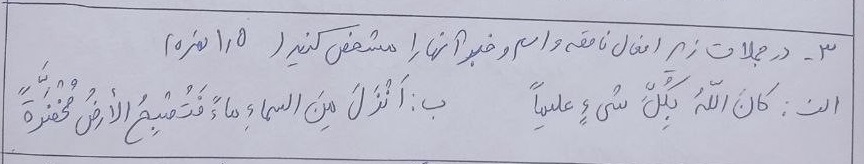 ۳- در جملات زیر افعال ناقصه و اسم و خبر آنها را مشخص کنید ( ۱٫۵ نمره)
الف : کانَ اللّهُ بِکُلِّ شیءٍ علیماً ب : أَنْزَلَ مِنَ السماءِ ماءً فَتُصْبِحُ الأرضُ مُخْضَرَّةً